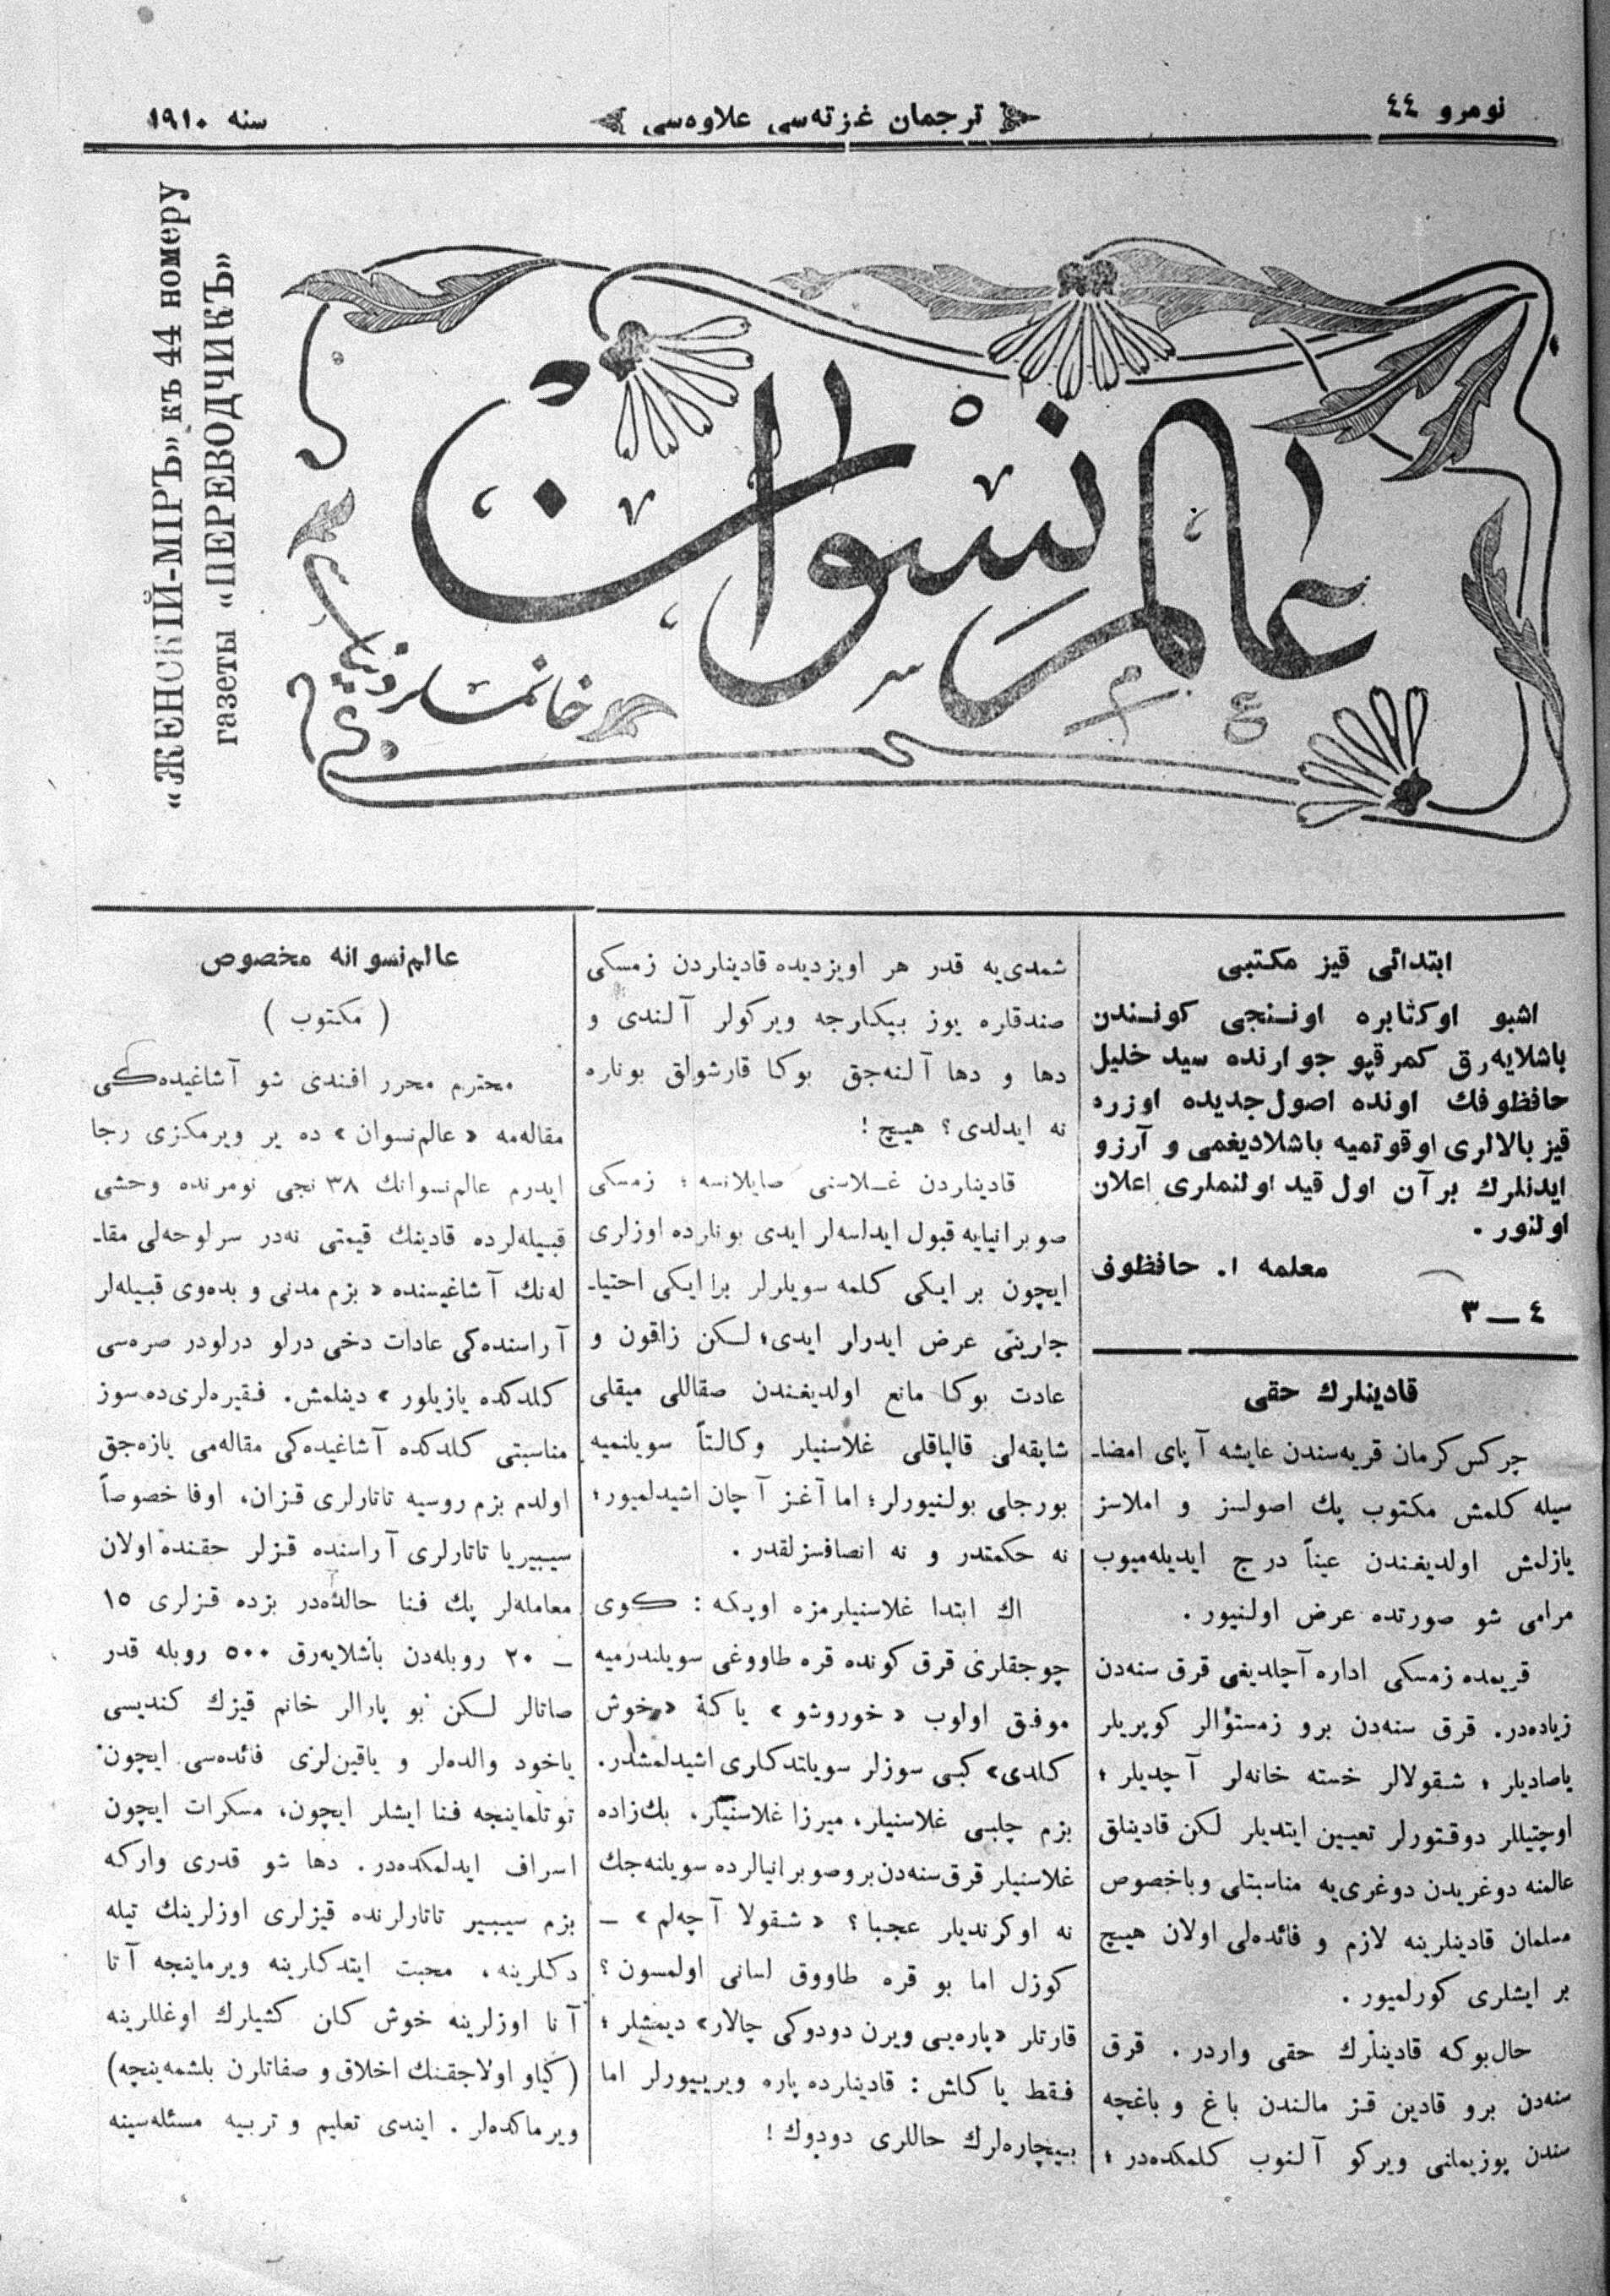 نومرو ٤٤
ترجمان غزته‌سی علاوه‌سی
سنه ١٩١٠
«ЖЕНСКІЙ-МІРЪ» къ 44 номеру
газеты «ПЕРЕВОДЧИКЪ»
عالم نسوان
خانملر دنیاسی
ابتدائی قیز مکتبی
اشبو اوکثابره اوننجی کونندن
باشلایه‌رق کمرقپو جوارنده سید خلیل
حافظوفك اونده اصول‌جدیده اوزره
قیز بالالری اوقوتمیه باشلادیغمی و آرزو
ایدنلرك برآن اول قید اولنملری اعلان
اولنور .
معلمه ا. حافظوف
٤ — ٣
قادینلرك حقی
چرکس‌کرمان قریه‌سندن عایشه آپای امضا-
سیله کلمش مکتوب پك اصولسز و املاسز
یازلمش اولدیغندن عیناً درج ایدیله‌میوب
مرامی شو صورتده عرض اولنیور .
قریمده زمسکی اداره آچلدیغی قرق سنه‌دن
زیاده‌در. قرق سنه‌دن برو زمستوالر کوپریلر
یاصادیلر ؛ شقولالر خسته خانه‌لر آچدیلر ؛
اوچتیللر دوقتورلر تعیین ایتدیلر لکن قادینلق
عالمنه دوغریدن دوغری‌یه مناسبتلی وباخصوص
مسلمان قادینلرینه لازم و فائده‌لی اولان هیچ
بر ایشلری کورلمیور .
حال‌بوکه قادینلرك حقی واردر . قرق
سنه‌دن برو قادین قز مالندن باغ و باغچه
سندن یوزیمانی ویرکو آلنوب کلمکده‌در ؛
شمدی‌یه قدر هر اویزدیده قادینلردن زمسکی
صندقاره یوز بیکلرجه ویرکولر آلندی و
دها و دها آلنه‌جق بوکا قارشولق بوناره
نه ایدلدی؟ هیچ !
قادینلردن غلاسنی صایلانسه ؛ زمسکی
صوبرانیایه قبول ایدلسه‌لر ایدی بونلرده اوزلری
ایچون بر ایکی کلمه سویلرلر برایکی احتیا-
جارینی عرض ایدرلر ایدی؛ لکن زاقون و
عادت بوکا مانع اولدیغندن صقاللی میقلی
شاپقه‌لی قالپاقلی غلاسنیلر وکالتاً سویلنمیه
بورجلی بولنیورلر؛ اما آغز آچان اشیدلمیور؛
نه حکمتدر و نه انصافسزلقدر .
اك ابتدا غلاسنیلرمزه اوپکه : کوی
چوجقلری قرق کونده قره طاووغی سویلندرمیه
موفق اولوب «خوروشو» یاکه «خوش
کلدی» کبی سوزلر سویلتدکلری اشیدلمشدر.
بزم چلبی غلاسنیلر، میرزا غلاسنیلر، بك‌زاده
غلاسنیلر قرق سنه‌دن‌بروصوبرانیالرده سویلنه‌جك
نه اوکرندیلر عجبا؟ «شقولا آچه‌لم» —
کوزل اما بو قره طاووق لسانی اولمسون؟
قارتلر «پاره‌یی ویرن دودوکی چالار» دیمشلر ؛
فقط یاکلش : قادینلرده پاره ویرییورلر اما
بیچاره‌لرك حاللری دودوك !
عالم‌نسوانه مخصوص
( مکتوب )
محترم محرر افندی شو آشاغیده‌کی
مقاله‌مه «عالم‌نسوان» ده یر ویرمکزی رجا
ایدرم عالم‌نسوانك ٣٨ نجی نومرنده وحشی
قبیله‌لرده قادینك قیمتی نه‌در سرلوحه‌لی مقا-
له‌نك آشاغیسنده «بزم مدنی و بده‌وی قبیله‌لر
آراسنده‌کی عادات دخی درلو درلودر صره‌سی
کلدکده یازیلور» دینلمش. فقیره‌لری‌ده سوز
مناسبتی کلدکده آشاغیده‌کی مقاله‌می یازه‌جق
اولدم بزم روسیه تاتارلری قزان، اوفا خصوصاً
سیبیریا تاتارلری آراسنده قزلر حقنده اولان
معامله‌لر پك فنا حالده‌در بزده قزلری ١٥
— ٢٠ روبله‌دن باشلایه‌رق ٥٠٠ روبله قدر
صاتالر لکن بو پارالر خانم قیزك کندیسی
یاخود والده‌لر و یاقین‌لری فائده‌سی ایچون
توتلماینچه فنا ایشلر ایچون، مسکرات ایچون
اسراف ایدلمکده‌در. دها شو قدری وارکه
بزم سیبیر تاتارلرنده قیزلری اوزلرینك تیله
دکلرینه، محبت ایتدکلرینه ویرماینجه آتا
آنا اوزلرینه خوش کلن کشیلرك اوغللرینه
(کیاو اولاجقنك اخلاق و صفاتلرن بلشمه‌ینچه)
ویرماکده‌لر . ایندی تعلیم و تربیه مسئله‌سینه